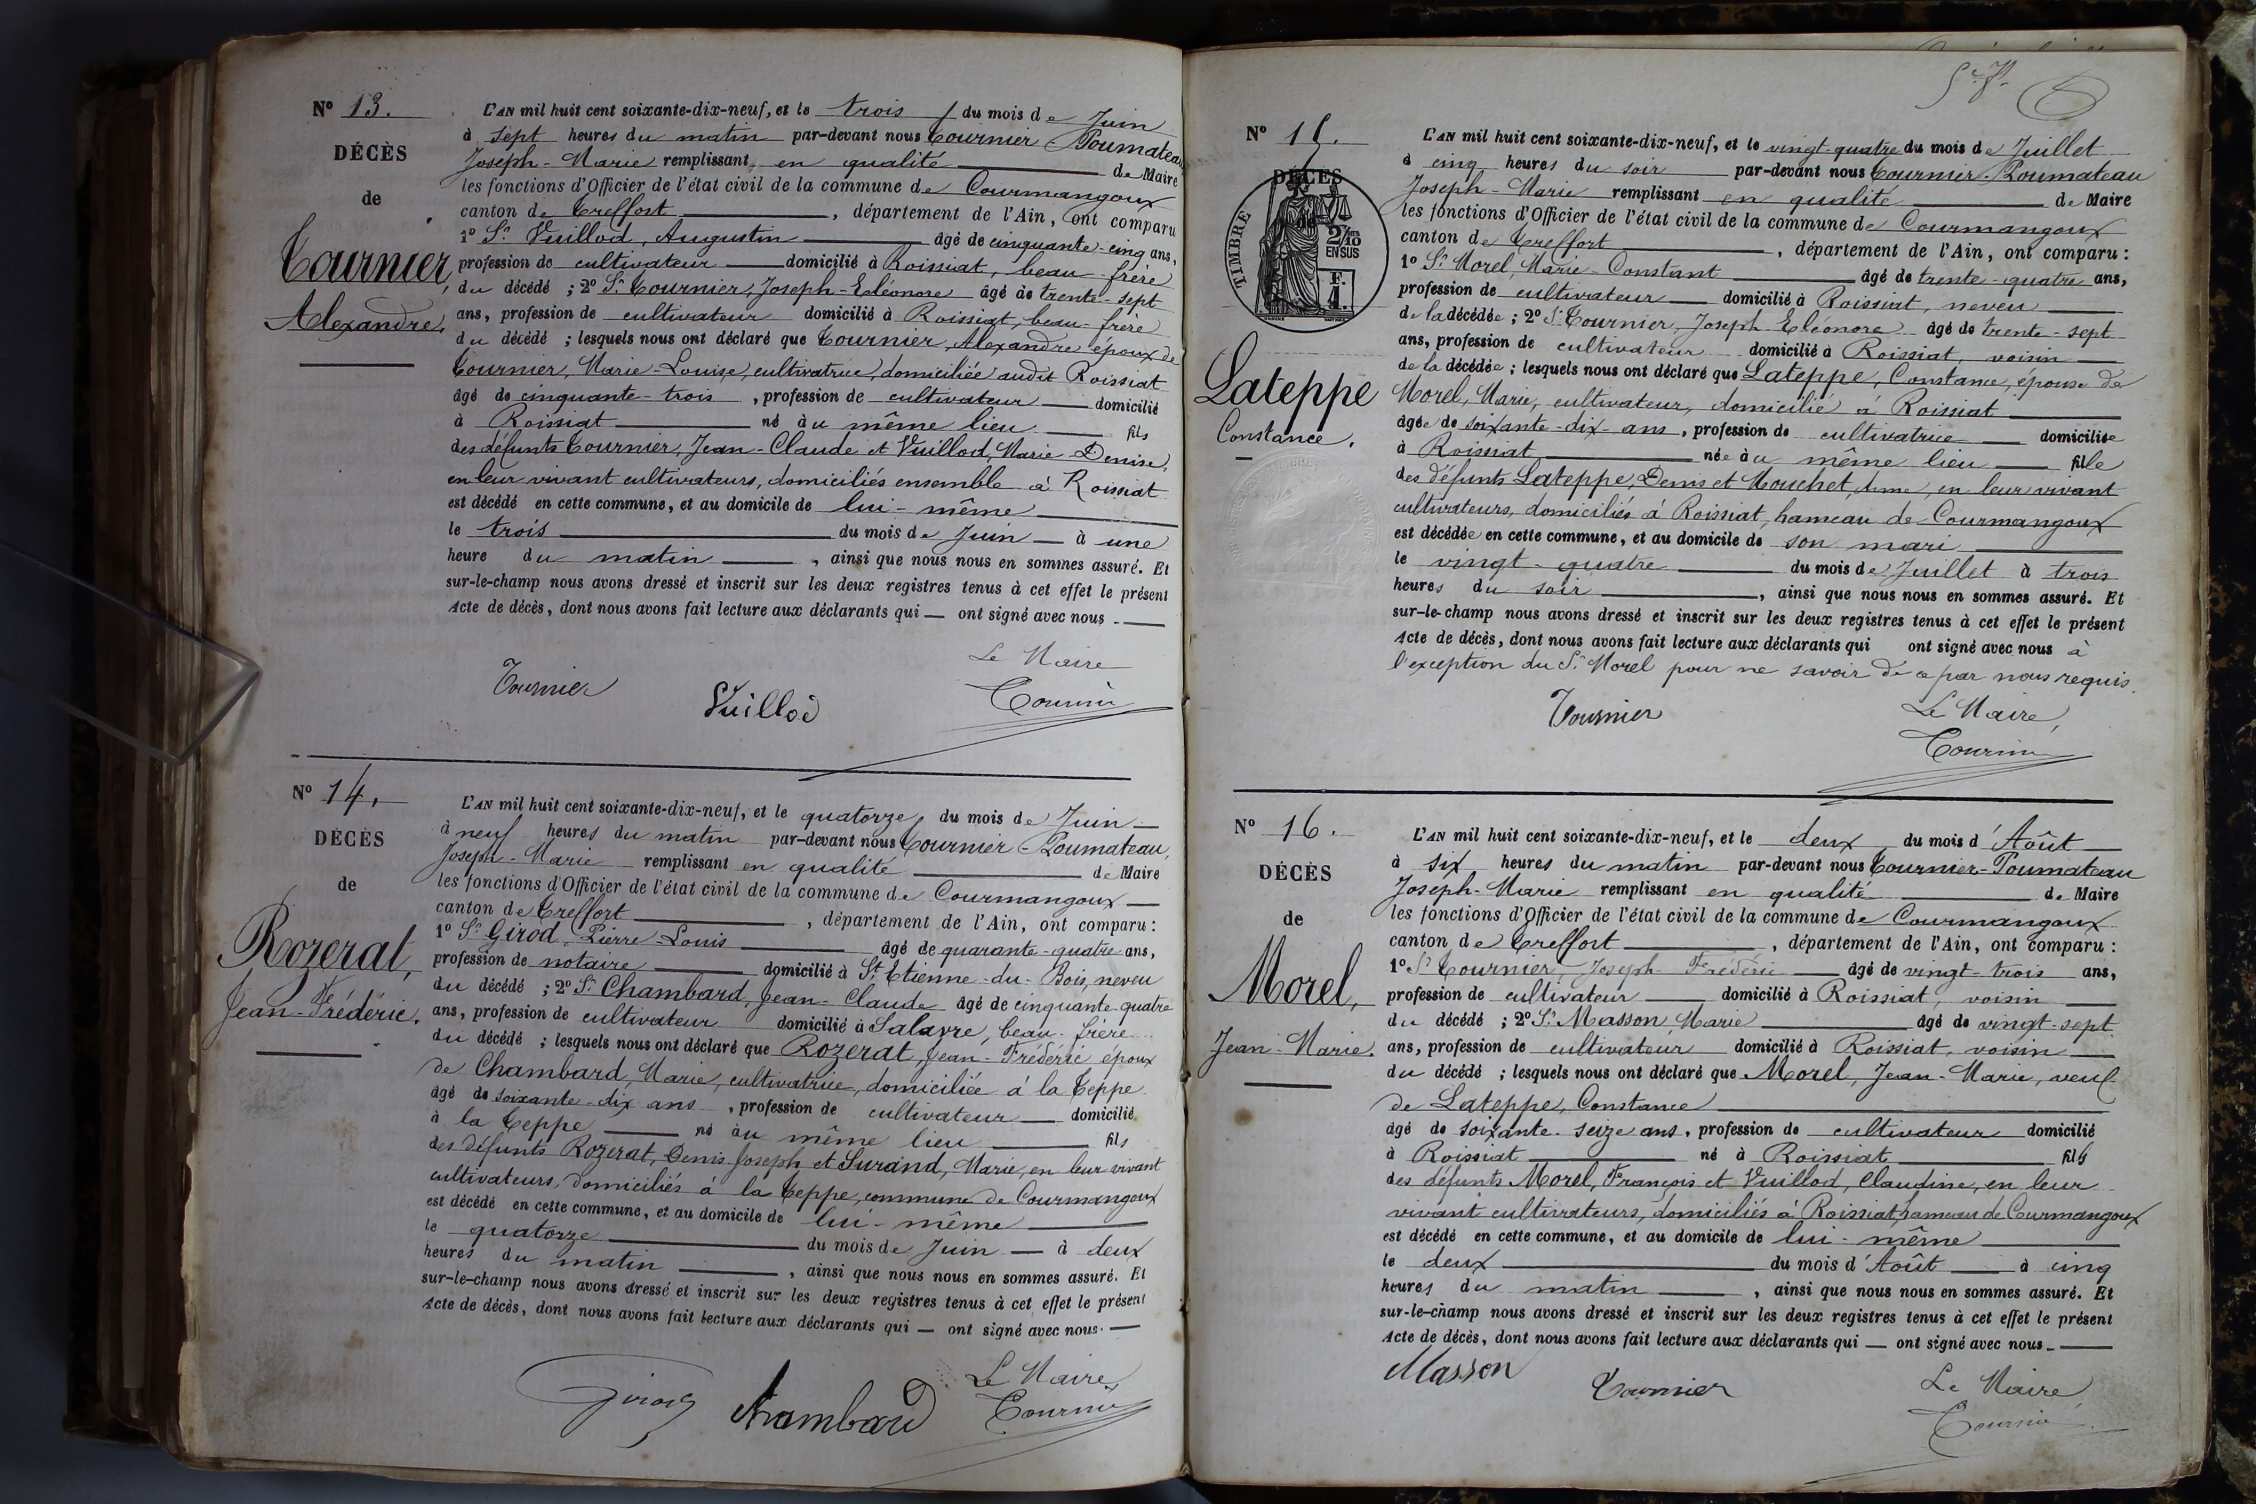 N° 13.
DÉCÈS
de
Tournier,
Alexandre.
L'AN mil huit cent soixante-dix-neuf, et le trois du mois de Juin
à sept heures du matin par-devant nous Tournier Poumateau
Joseph-Marie remplissant en qualité de Maire
les fonctions d'Officier de l'état civil de la commune de Courmangoux
canton de Treffort, département de l'Ain, ont comparu
1° Sr. Vuillod, Augustin âgé de cinquante-cinq ans,
profession de cultivateur domicilié à Roissiat, beau-frère
du décédé ; 2° Sr. Tournier, Joseph-Eléonore âgé de trente-sept
ans, profession de cultivateur domicilié à Roissiat, beau-frère
du décédé ; lesquels nous ont déclaré que Tournier, Alexandre époux de
Tournier, Marie-Louise, cultivatrice, domiciliée audit Roissiat
âgé de cinquante-trois, profession de cultivateur domicilié
à Roissiat né au même lieu fils
des défunts Tournier, Jean-Claude et Vuillod, Marie-Denise,
en leur vivant cultivateurs, domiciliés ensemble à Roissiat
est décédé en cette commune, et au domicile de lui-même
le trois du mois de Juin à une
heure du matin, ainsi que nous nous en sommes assuré. Et
sur-le-champ nous avons dressé et inscrit sur les deux registres tenus à cet effet le présent
Acte de décès, dont nous avons fait lecture aux déclarants qui — ont signé avec nous.
Le Maire
Tournier Vuillod Tournier
N° 14.
DÉCÈS
de
Rozerat,
Jean-Frédéric.
L'AN mil huit cent soixante-dix-neuf, et le quatorze du mois de Juin
à neuf heures du matin par-devant nous Tournier-Poumateau,
Joseph-Marie remplissant en qualité de Maire
les fonctions d'Officier de l'état civil de la commune de Courmangoux
canton de Treffort, département de l'Ain, ont comparu :
1° Sr. Girod, Pierre-Louis âgé de quarante-quatre ans,
profession de notaire domicilié à St. Etienne-du-Bois, neveu
du décédé ; 2° Sr. Chambard, Jean-Claude âgé de cinquante-quatre
ans, profession de cultivateur domicilié à Salavre, beau-frère
du décédé ; lesquels nous ont déclaré que Rozerat, Jean-Frédéric époux
de Chambard, Marie, cultivatrice, domiciliée à la Teppe
âgé de soixante-dix ans, profession de cultivateur domicilié
à la Teppe né au même lieu fils
des défunts Rozerat, Denis-Joseph et Surand, Marie, en leur vivant
cultivateurs, domiciliés à la Teppe, commune de Courmangoux
est décédé en cette commune, et au domicile de lui-même
le quatorze du mois de Juin à deux
heures du matin, ainsi que nous nous en sommes assuré. Et
sur-le-champ nous avons dressé et inscrit sur les deux registres tenus à cet effet le présent
Acte de décès, dont nous avons fait lecture aux déclarants qui — ont signé avec nous.
Le Maire,
Girod Chambard Tournier
N° 15.
DÉCÈS
de
TIMBRE
2/10
EN SUS
F.
1.
Lateppe
Constance.
L'AN mil huit cent soixante-dix-neuf, et le vingt-quatre du mois de Juillet
à cinq heures du soir par-devant nous Tournier-Poumateau
Joseph-Marie remplissant en qualité de Maire
les fonctions d'Officier de l'état civil de la commune de Courmangoux
canton de Treffort, département de l'Ain, ont comparu :
1° Sr. Morel, Marie-Constant âgé de trente-quatre ans,
profession de cultivateur domicilié à Roissiat, neveu
de la décédée ; 2° Sr. Tournier, Joseph-Eléonore âgé de trente-sept
ans, profession de cultivateur domicilié à Roissiat, voisin
de la décédée ; lesquels nous ont déclaré que Lateppe, Constance, épouse de
Morel, Marie, cultivateur, domicilié à Roissiat
âgée de soixante-dix ans, profession de cultivatrice domiciliée
à Roissiat née au même lieu fille
des défunts Lateppe, Denis et Mouchet, en leur vivant
cultivateurs, domiciliés à Roissiat, hameau de Courmangoux
est décédée en cette commune, et au domicile de son mari
le vingt-quatre du mois de Juillet à trois
heures du soir, ainsi que nous nous en sommes assuré. Et
sur-le-champ nous avons dressé et inscrit sur les deux registres tenus à cet effet le présent
Acte de décès, dont nous avons fait lecture aux déclarants qui ont signé avec nous à
l'exception du Sr. Morel pour ne savoir de ce par nous requis.
Le Maire,
Tournier Tournier
N° 16.
DÉCÈS
de
Morel,
Jean-Marie.
L'AN mil huit cent soixante-dix-neuf, et le deux du mois d'Août
à six heures du matin par-devant nous Tournier-Poumateau
Joseph-Marie remplissant en qualité de Maire
les fonctions d'Officier de l'état civil de la commune de Courmangoux
canton de Treffort, département de l'Ain, ont comparu :
1° Sr. Tournier, Joseph-Frédéric âgé de vingt-trois ans,
profession de cultivateur domicilié à Roissiat, voisin
du décédé ; 2° Sr. Masson, Marie âgé de vingt-sept
ans, profession de cultivateur domicilié à Roissiat, voisin
du décédé ; lesquels nous ont déclaré que Morel, Jean-Marie, veuf
de Lateppe, Constance
âgé de soixante-seize ans, profession de cultivateur domicilié
à Roissiat né à Roissiat fils
des défunts Morel, François et Vuillod, Claudine, en leur
vivant cultivateurs, domiciliés à Roissiat, hameau de Courmangoux
est décédé en cette commune, et au domicile de lui-même
le deux du mois d'Août à cinq
heures du matin, ainsi que nous nous en sommes assuré. Et
sur-le-champ nous avons dressé et inscrit sur les deux registres tenus à cet effet le présent
Acte de décès, dont nous avons fait lecture aux déclarants qui — ont signé avec nous.
Masson Tournier Le Maire,
Tournier